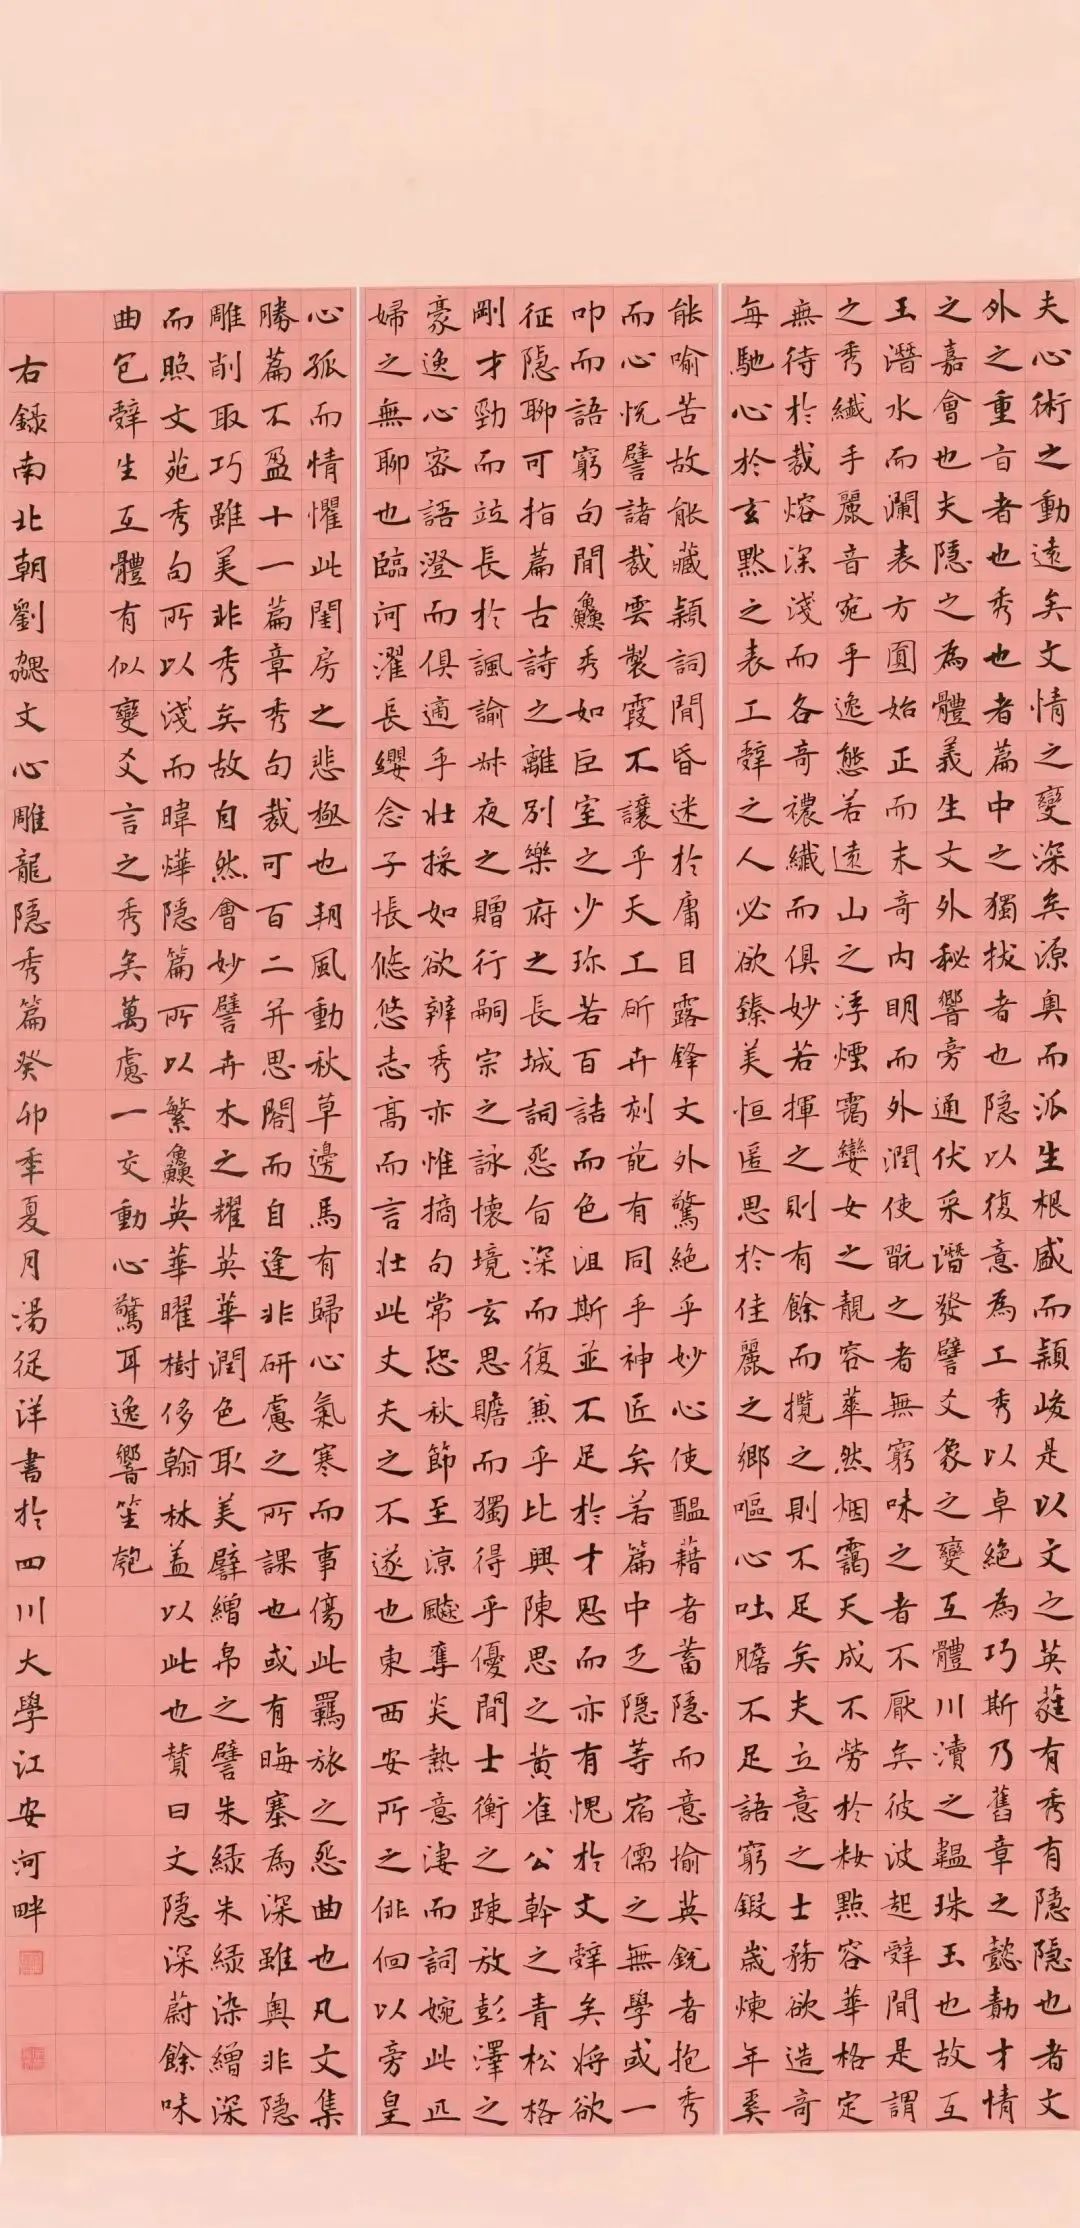 夫心術之動遠矣文情之變深矣源奧而派生根盛而穎峻是以文之英蕤有秀有隱隱也者文
外之重旨者也秀也者篇中之獨拔者也隱以復意為工秀以卓絕為巧斯乃舊章之懿勣才情
之嘉會也夫隱之為體義生文外秘響旁通伏采潛發譬爻象之變互體川瀆之韞珠玉也故互
王潛水而瀾表方圓始正而末奇內明而外潤使翫之者無窮味之者不厭矣彼波起辭間是謂
之秀纖手麗音宛乎逸態若遠山之浮煙靄孌女之靚容華然烟靄天成不勞於妝點容華格定
無待於裁熔深淺而各奇穠纖而俱妙若揮之則有餘而攬之則不足矣夫立意之士務欲造奇
每馳心於玄默之表工辭之人必欲臻美恒匿思於佳麗之鄉嘔心吐膽不足語窮鍛歲煉年奚
能喻苦故能藏穎詞間昏迷於庸目露鋒文外驚絕乎妙心使醞藉者蓄隱而意愉英銳者抱秀
而心悅譬諸裁雲製霞不讓乎天工斫卉刻葩有同乎神匠矣若篇中乏隱等宿儒之無學或一
叩而語窮句間鱻秀如巨室之少珍若百詰而色沮斯並不足於才思而亦有愧於文辭矣將欲
征隱聊可指篇古詩之離別樂府之長城詞怨旨深而復兼乎比興陳思之黃雀公幹之青松格
剛才勁而竝長於諷諭叔夜之贈行嗣宗之詠懷境玄思贍而獨得乎優間士衡之疎放彭澤之
豪逸心密語澄而俱適乎壯採如欲辨秀亦惟摘句常恐秋節至涼飇奪炎熱意淒而詞婉此匹
婦之無聊也臨河濯長纓念子悵悠悠志高而言壯此丈夫之不遂也東西安所之俳佪以旁皇
心孤而情懼此閨房之悲極也朔風動秋草邊馬有歸心氣寒而事傷此羈旅之怨曲也凡文集
勝篇不盈十一篇章秀句裁可百二并思閤而自逢非研慮之所課也或有晦塞為深雖奧非隱
雕削取巧雖美非秀矣故自然會妙譬卉木之耀英華潤色取美譬繒帛之譬朱綠朱綠染繒深
而照文苑秀句所以淺而暐燁隱篇所以繁鱻英華曜樹侈翰林盖以此也贊曰文隱深蔚餘味
曲包辭生互體有似變爻言之秀矣萬慮一交動心驚耳逸響笙匏
右錄南北朝劉勰文心雕龍隱秀篇癸卯季夏月湯従洋書於四川大學江安河畔